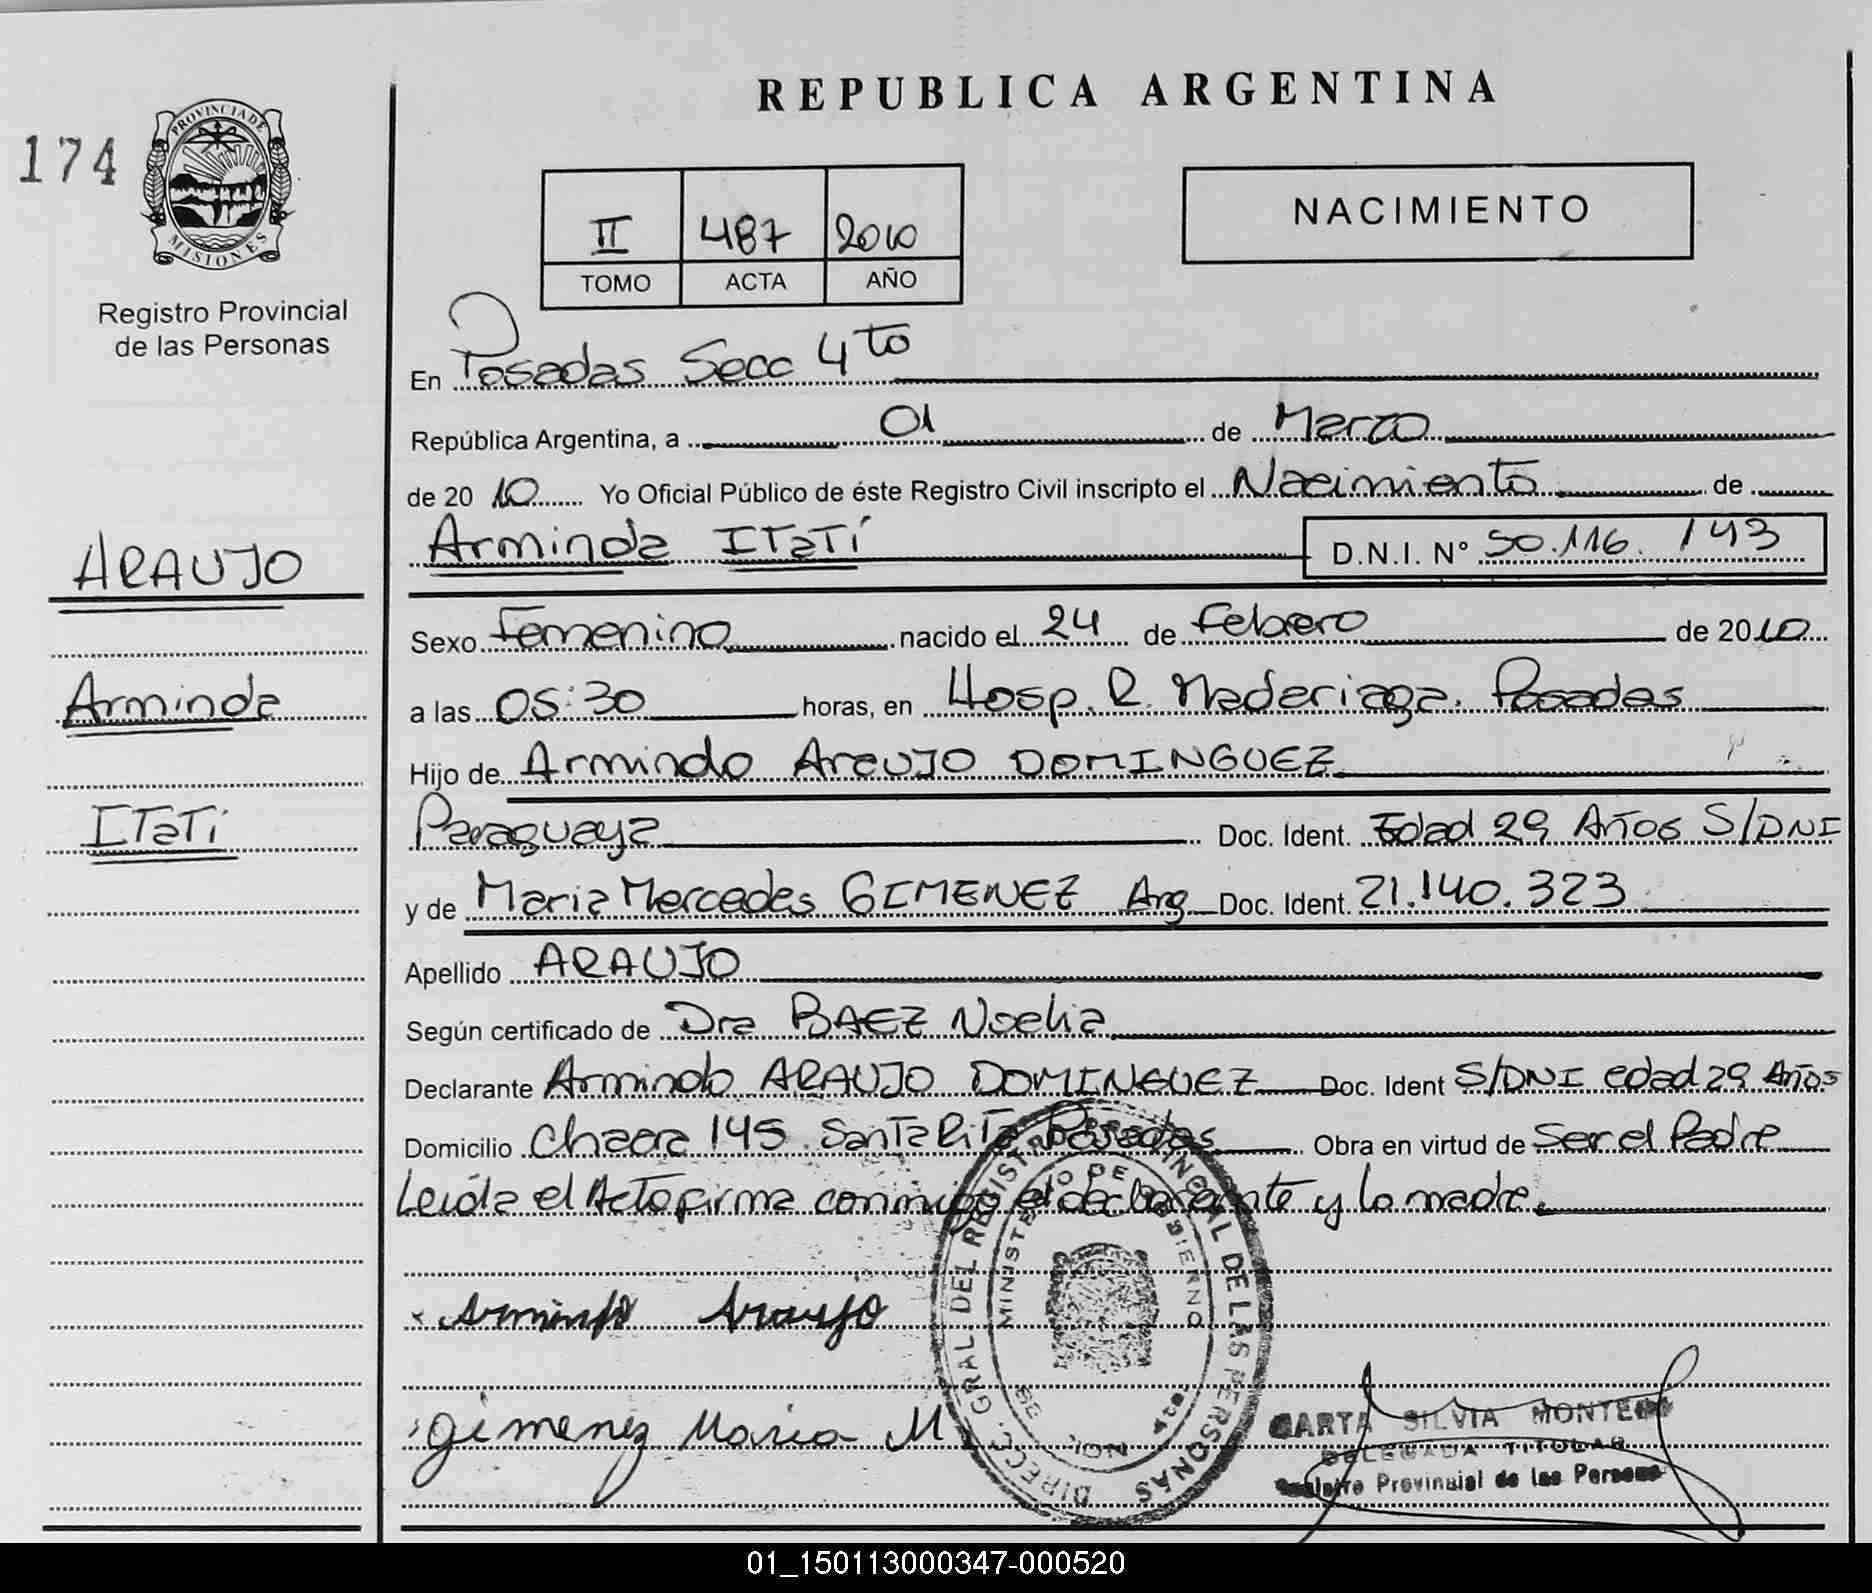 REPUBLICA ARGENTINA
174
PROVINCIA DE
MISIONES
Registro Provincial
de las Personas
II 487 2010
TOMO ACTA AÑO
NACIMIENTO
En Posadas Secc 4to
República Argentina, a 01 de Marzo
de 2010 Yo Oficial Público de éste Registro Civil inscripto el Nacimiento de
Arminda ITaTí D.N.I. Nº 50.116.143
ARAUJO
Arminda
ITaTí
Sexo Femenino nacido el 24 de Febrero de 2010
a las 05:30 horas, en Hosp. R. Madariaga. Posadas
Hijo de Armindo Araujo DOMINGUEZ
Paraguaya Doc. Ident. Edad 29 Años S/DNI
y de Maria Mercedes GIMENEZ Arg Doc. Ident. 21.140.323
Apellido ARAUJO
Según certificado de Dra BAEZ Noelia
Declarante Armindo ARAUJO DOMINGUEZ Doc. Ident S/DNI edad 29 Años
Domicilio Chacra 145 Santa Rita Posadas Obra en virtud de Ser el Padre
Leida el Acta firma conmigo el declarante y la madre.
DIRECC. GRAL. DEL REGISTRO PROVINCIAL DE LAS PERSONAS
MINISTERIO DE GOBIERNO
Armindo Araujo
gimenez Maria M
SILVIA
DELEGADA TITULAR
Registro Provincial de las Personas
01_150113000347-000520